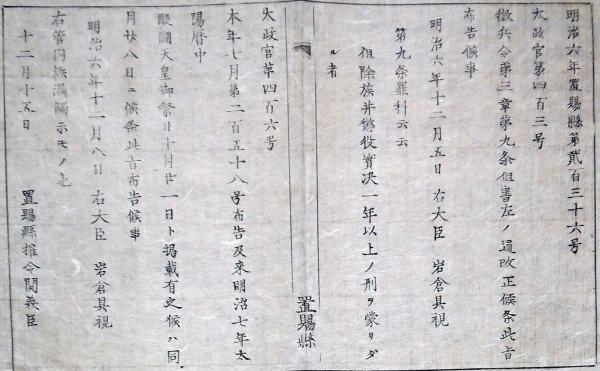 明治六年置賜縣第貳百三十六号
太政官第四百三号
徴兵令第三章第九条但書左ノ通改正候条此旨
布告候事
明治六年十二月五日 右大臣 岩倉具視
第九条罪科云云
但除族并懲役實決一年以上ノ刑ヲ蒙リタ
ル者
置賜縣
太政官第四百六号
本年七月第二百五十八号布告及来明治七年太
陽暦中
醍醐天皇御祭日十月廿一日ト掲載有之候ハ同
月廿八日ニ候条此旨布告候事
明治六年十二月八日 右大臣 岩倉具視
右管内無漏觸示モノ也
十二月十五日 置賜縣権令関義臣